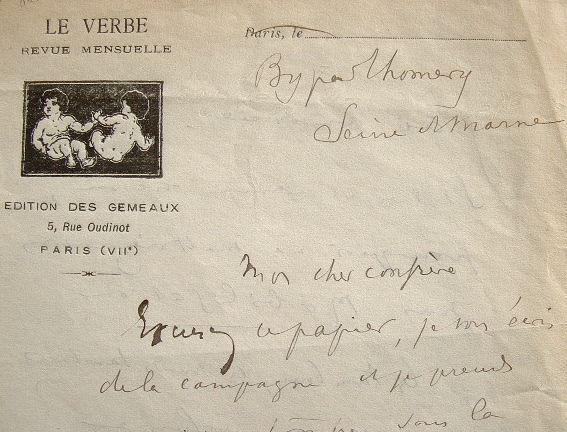 LE VERBE
REVUE MENSUELLE
EDITION DES GEMEAUX
5, Rue Oudinot
PARIS (VIIᵉ)
Paris, le
By par Thomery
Seine et Marne
Mon cher confrère
Excusez ce papier, je vous écris
de la campagne et je prends
sous la